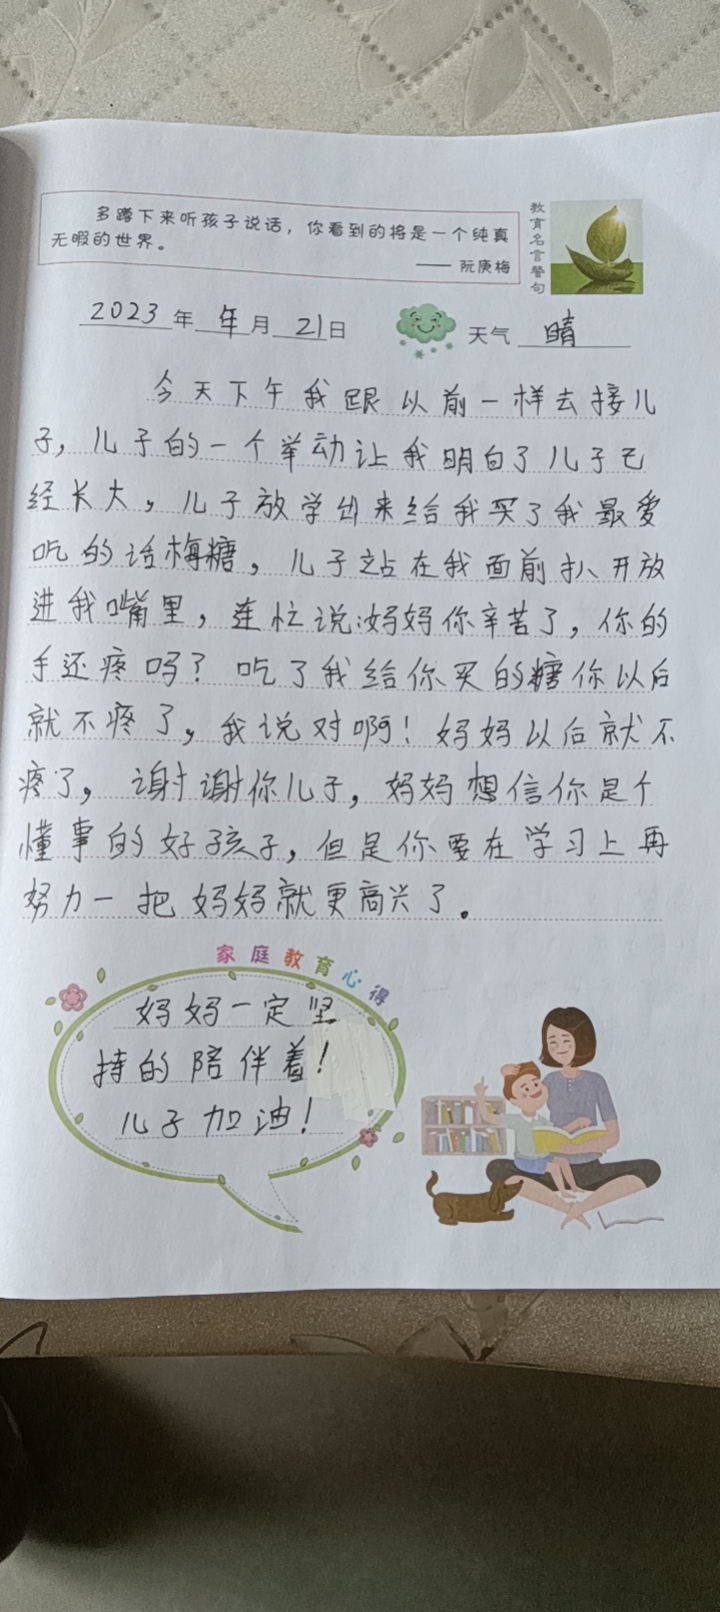 多蹲下来听孩子说话，你看到的将是一个纯真
无暇的世界。
—— 阮庚梅
教育名言警句
2023年 年月 21日 天气 晴
今天下午我跟以前一样去接儿
子，儿子的一个举动让我明白了儿子已
经长大，儿子放学出来给我买了我最爱
吃的话梅糖，儿子站在我面前扒开放
进我嘴里，连忙说:妈妈你辛苦了，你的
手还疼吗？吃了我给你买的糖你以后
就不疼了，我说对啊！妈妈以后就不
疼了，谢谢你儿子，妈妈想信你是个
懂事的好孩子，但是你要在学习上再
努力一把妈妈就更高兴了。
家庭教育心得
妈妈一定坚
持的陪伴着！
儿子加油！